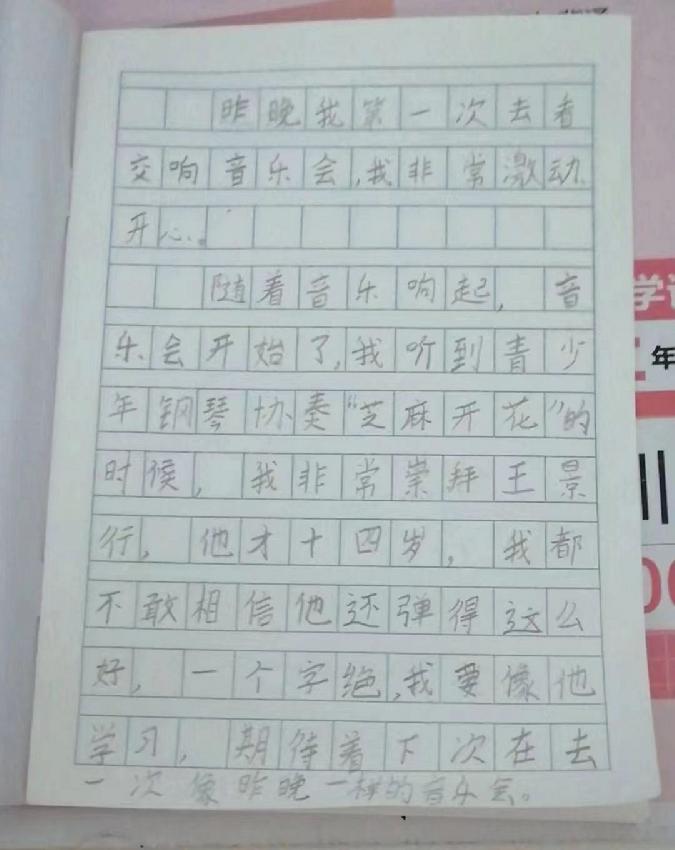 昨晚我第一次去看
交响音乐会,我非常激动
开心。
随着音乐响起,音
乐会开始了,我听到青少
年钢琴协奏“芝麻开花”的
时候,我非常崇拜王景
行,他才十四岁,我都
不敢相信他还弹得这么
好,一个字绝,我要像他
学习,期待着下次在去
一次像昨晚一样的音乐会。
学
年